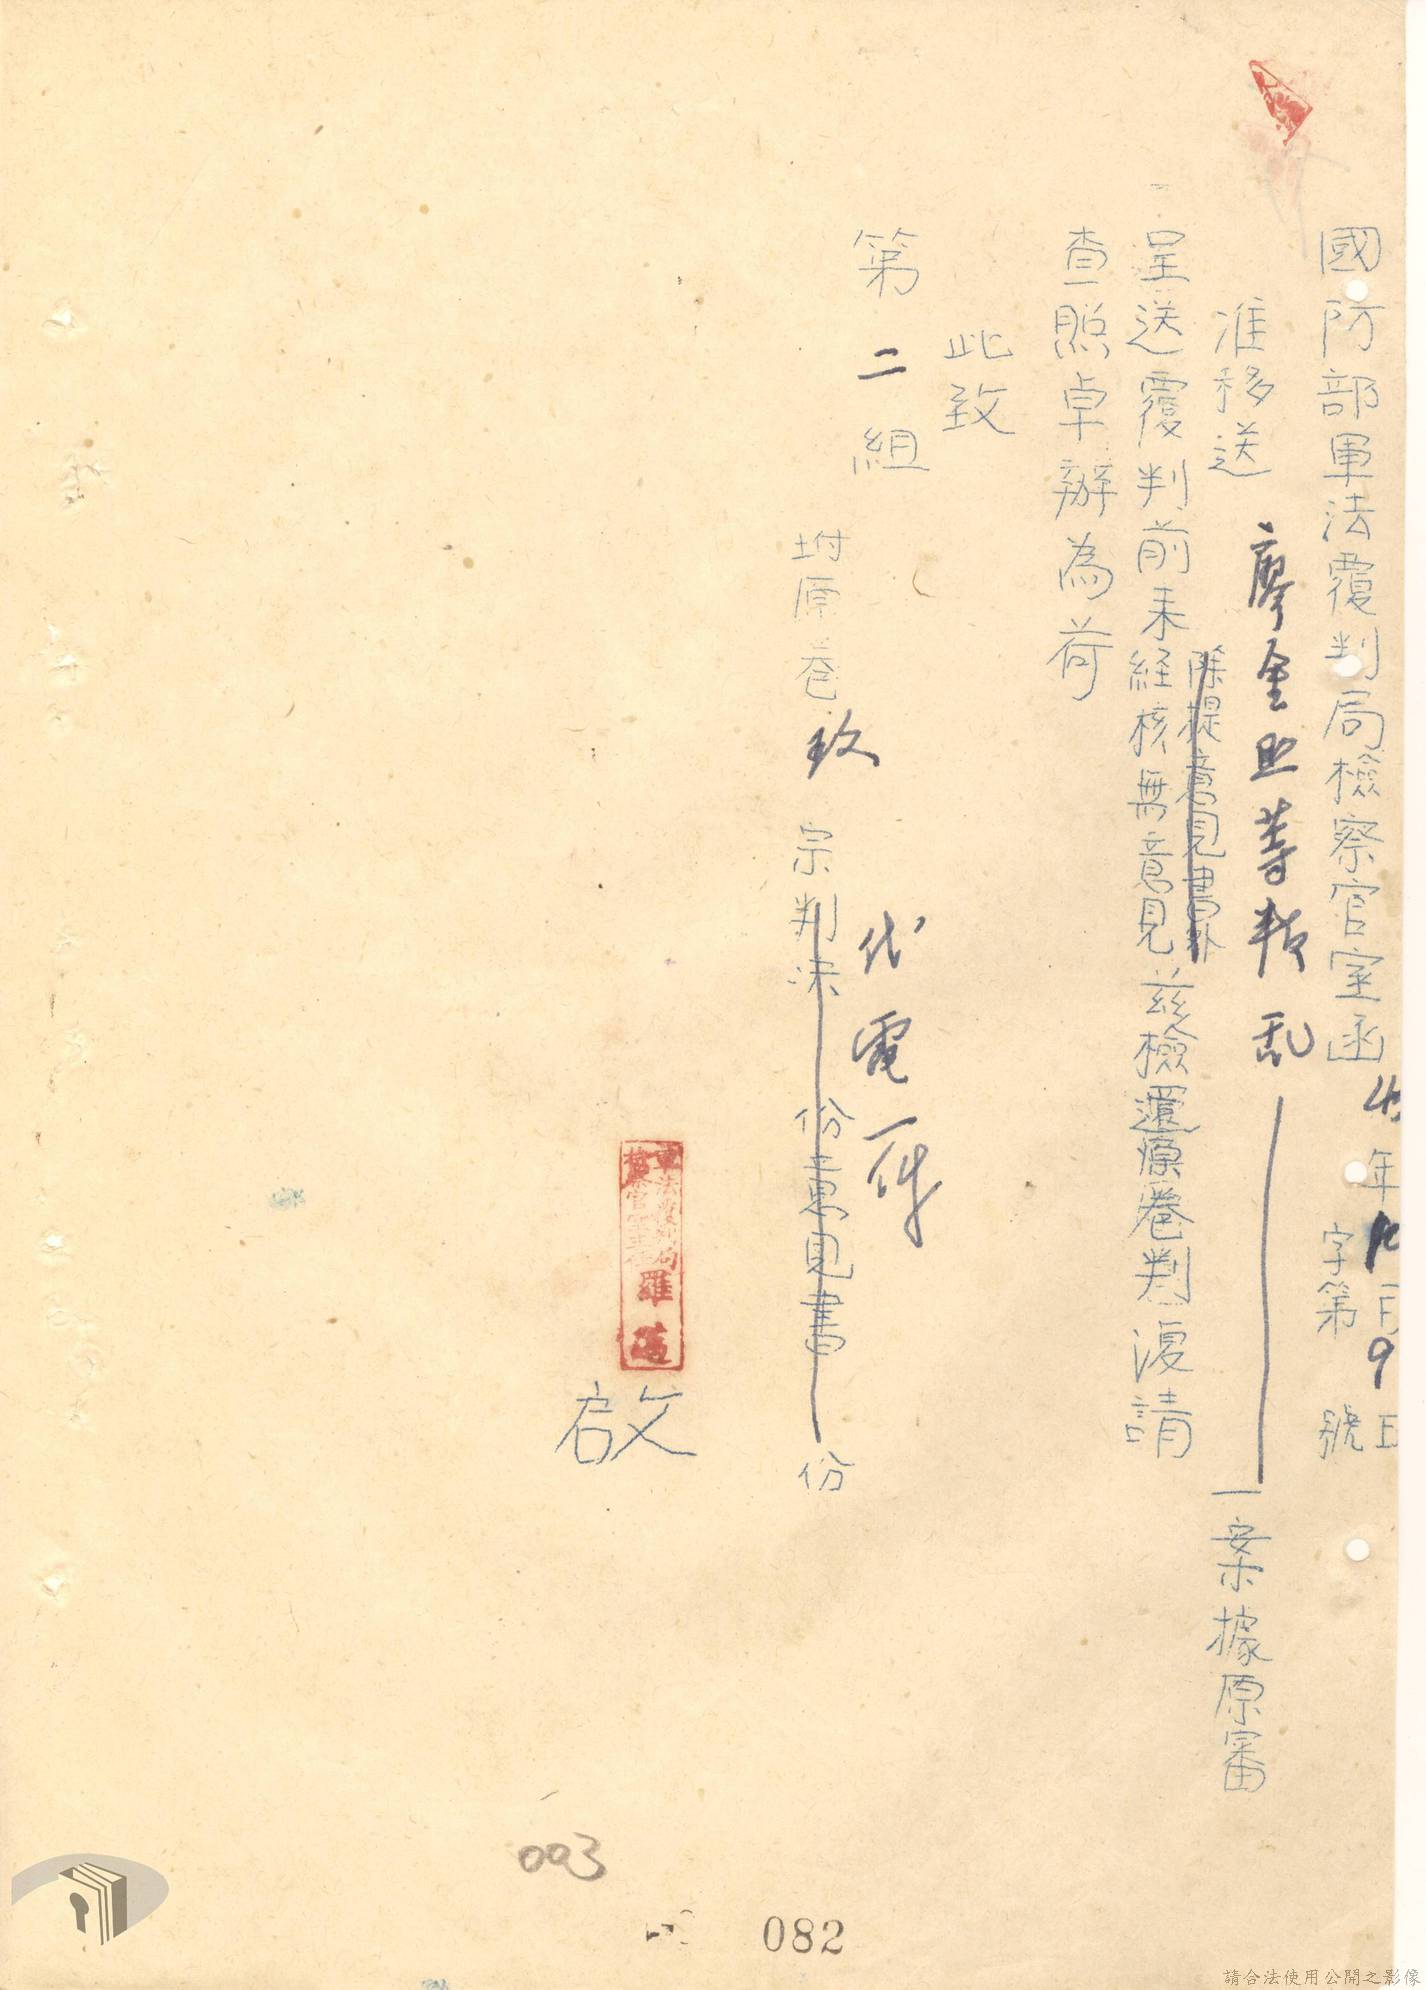 國防部軍法覆判局檢察官室函
年 月9日
字第 號
准移送廖金照等叛乱一案據原審
呈送覆判前来
除提意見書外
經核無意見茲檢還原卷判復請
查照卓辦為荷
此致
第二組
代電一件
坿原卷玖宗判决 份意見書 份
軍法覆判局
檢察官室主任
羅
啟
003
082
請合法使用公開之影像